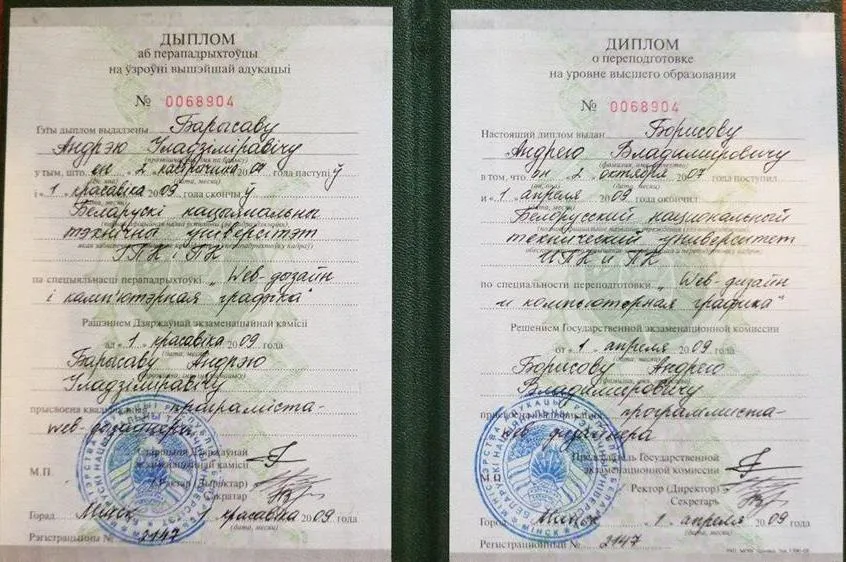 ДЫПЛОМ
аб перападрыхтоўцы
на ўзроўні вышэйшай адукацыі
№ 0068904
Гэты дыплом выдадзены Барысаву
Андрэю Уладзіміравічу
у тым, што ён 2 кастрычніка 2007 года паступіў
і 1 красавіка 2009 скончыў
Беларускі нацыянальны
тэхнічны універсітэт
ІПК і ПК
па спецыяльнасці перападрыхтоўкі „Web-дызайн
і камп'ютэрная графіка"
Рашэннем Дзяржаўнай экзаменацыйнай камісіі
ад 1 красавіка 2009 года
(дата, месяц)
Барысаву Андрэю
Уладзіміравічу
прысвоена кваліфікацыя праграміста-
web-дызайнера
Старшыня Дзяржаўнай
экзаменацыйнай камісіі
М.П.
Рэктар (Дырэктар)
Сакратар
Горад Мінск красавіка 2009 года
(дата, месяц)
Рэгістрацыйны № 2147
ДИПЛОМ
о переподготовке
на уровне высшего образования
№ 0068904
Настоящий диплом выдан Борисову
Андрею Владимировичу
(фамилия, имя, отчество)
в том, что он 2 октября 2007 поступил
(дата, месяц)
и 1 апреля 2009 окончил
(дата, месяц)
Белорусский национальный
технический университет
ИПК и ПК
по специальности переподготовки „Web-дизайн
и компьютерная графика"
Решением Государственной экзаменационной комиссии
от 1 апреля 2009
(дата, месяц)
Борисову Андрею
Владимировичу
программиста-
web-дизайнера
Председатель Государственной
экзаменационной комиссии
М.П.
Ректор (Директор)
Секретарь
Город Минск 1 апреля 2009 года
(дата, месяц)
Регистрационный № 2147